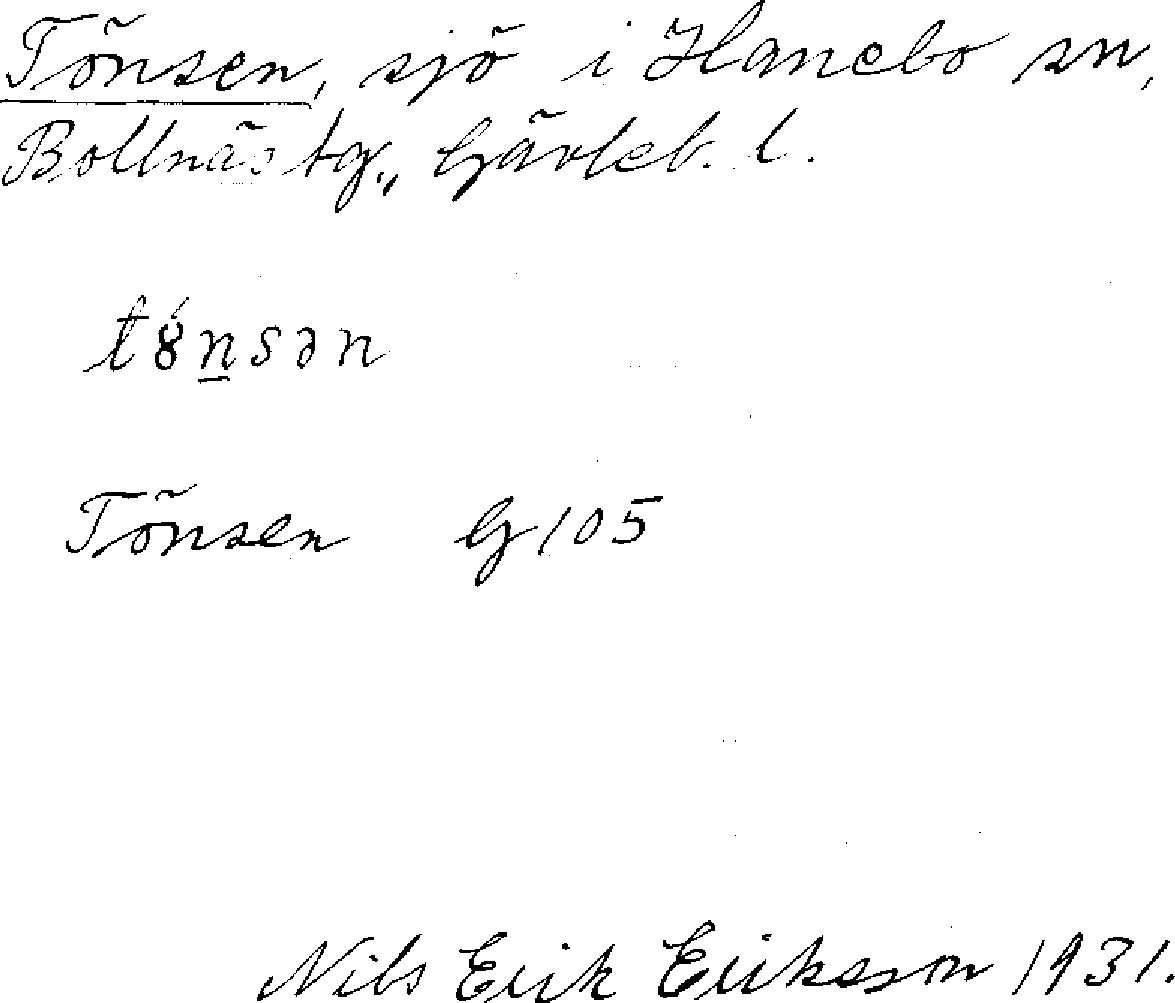 Tönsen, sjö i Hanebo sn,
Bollnäs tg., Gävleb. l.
tȣ́n̲sən
Tönsen G 105
Nils Erik Eriksson 1931.